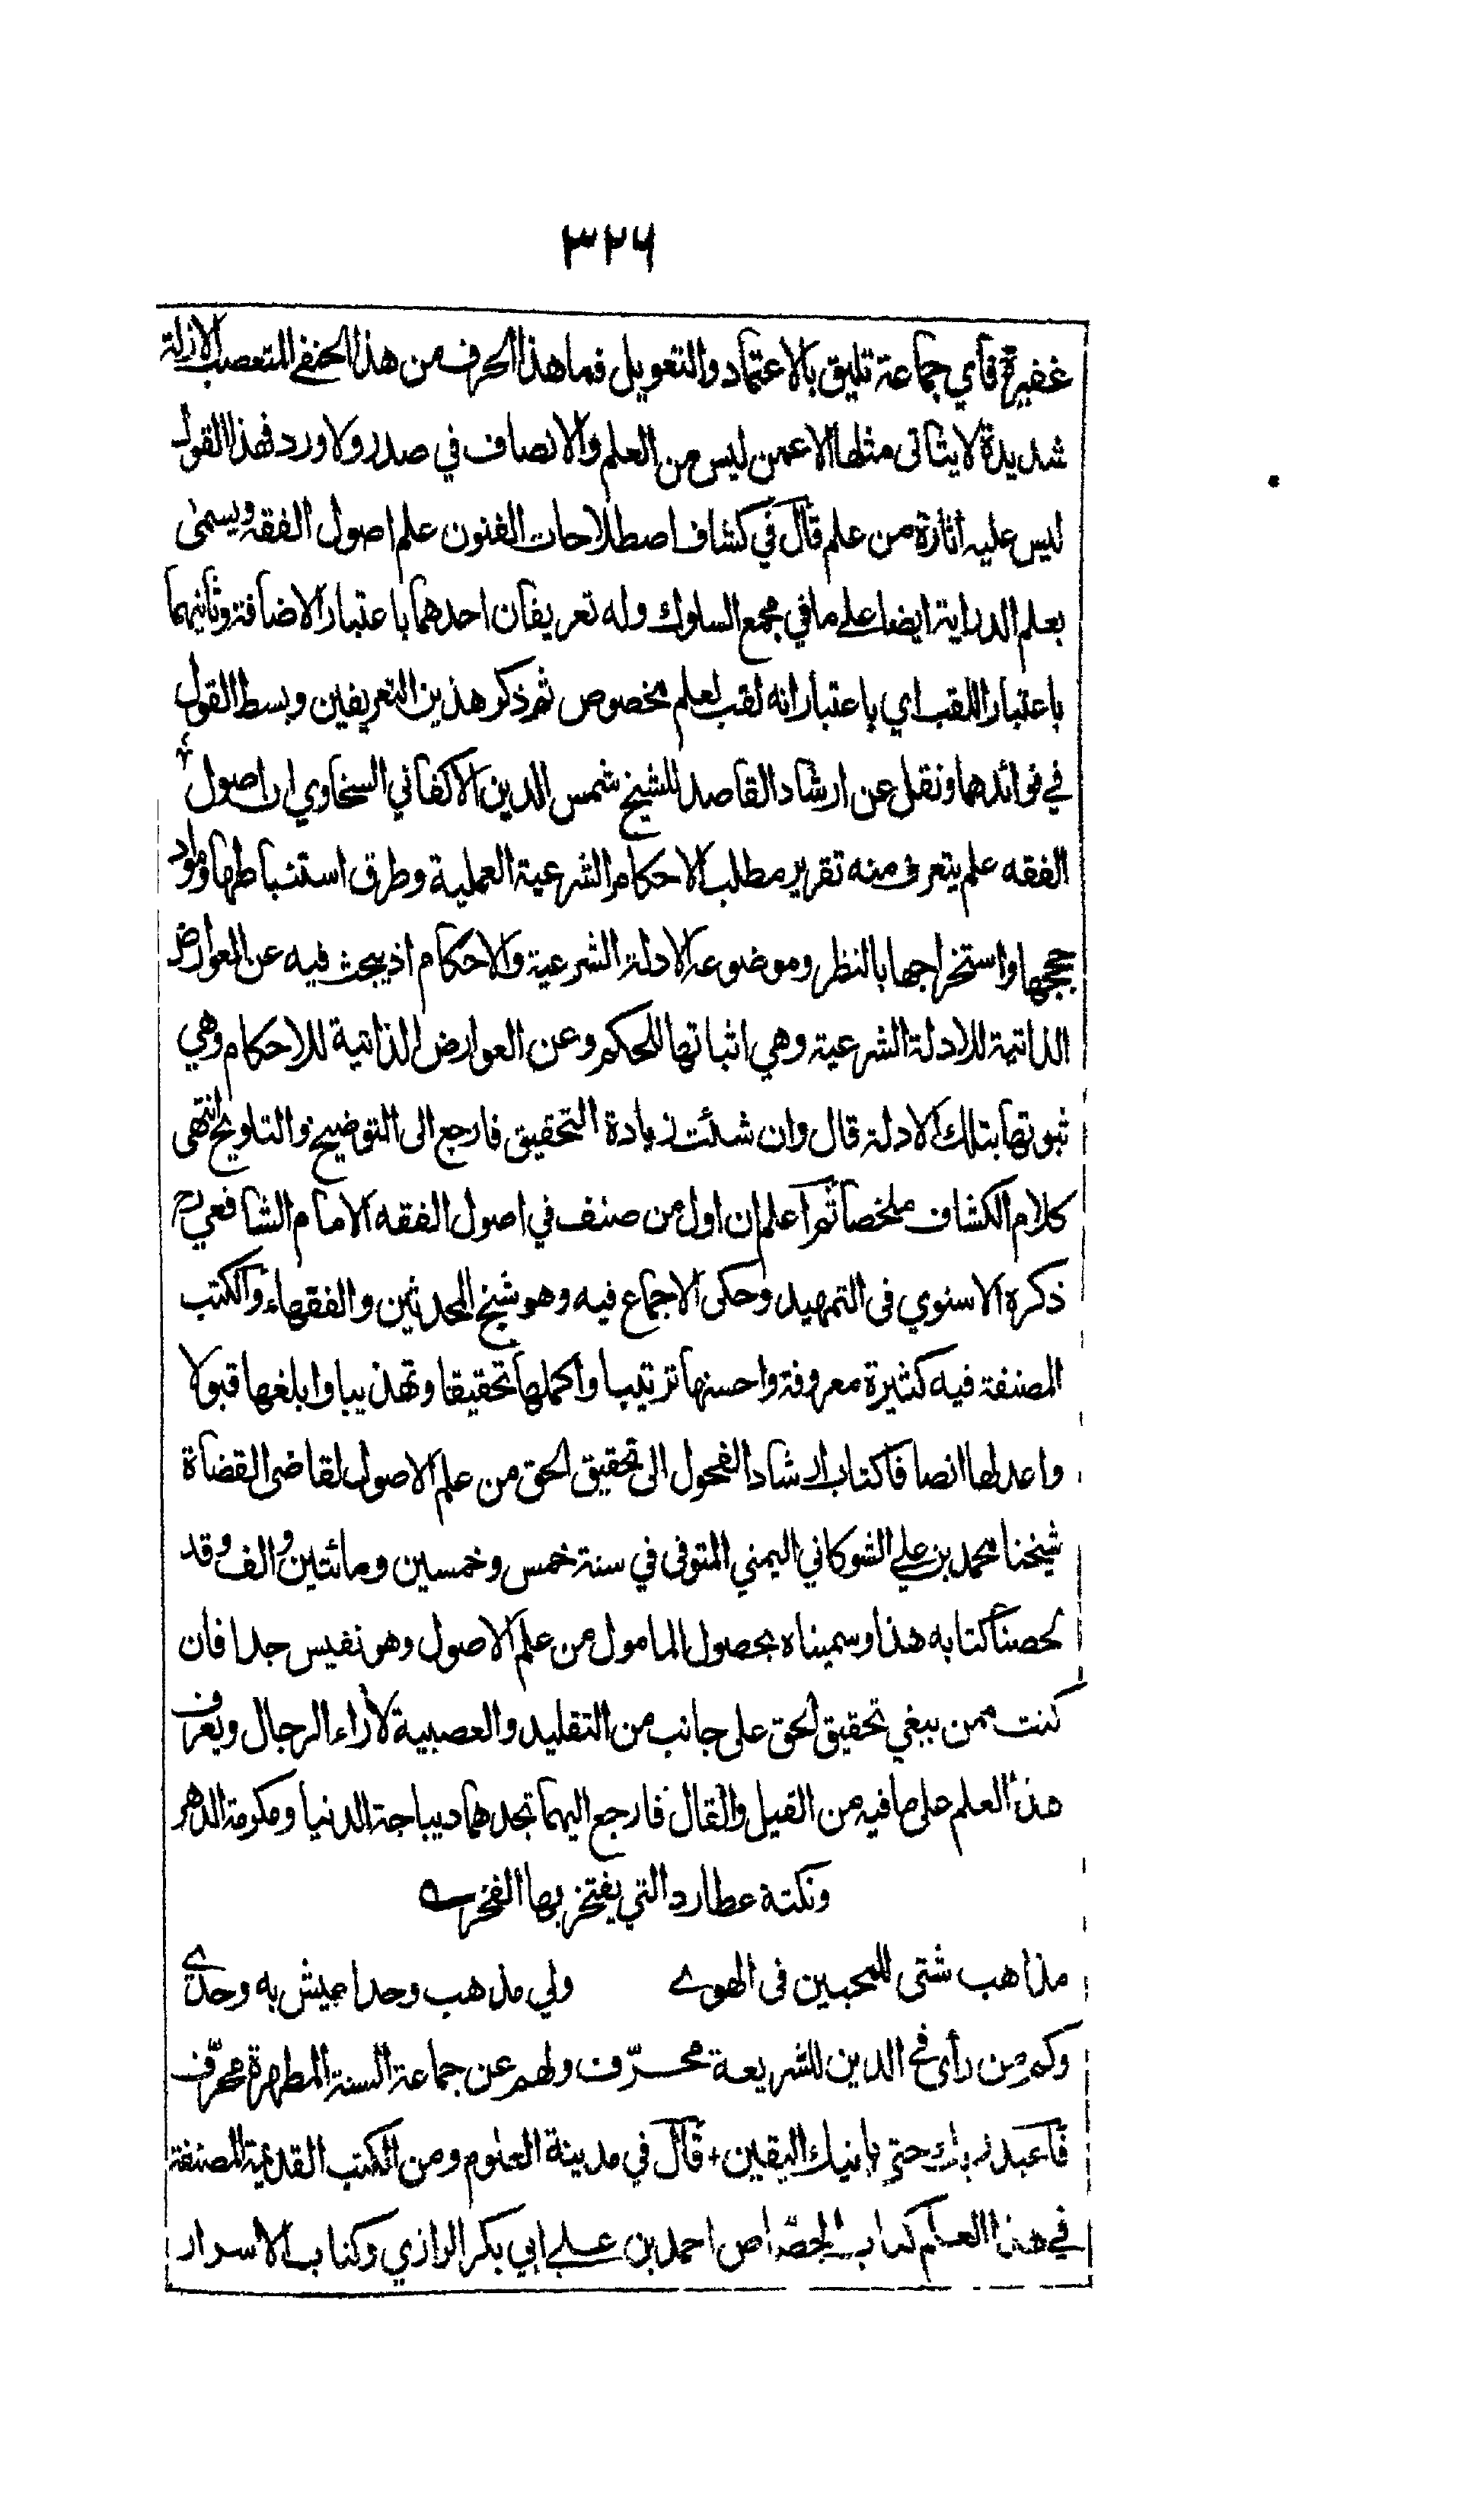 ٣٢٦
غفيرة فأي جماعة تليق بالاعتماد والتعويل فما هذا الحرف من هذا الحنفي المتعصب الا زلة
شديدة لا يتأتى مثلها الا عمن ليس من العلم والانصاف في صدر ولا ورد فهذا القول
ليس عليه اثارة من علم قال في كشاف اصطلاحات الفنون علم اصول الفقه ويسمى
بعلم الدراية ايضا على ما في مجمع السلوك وله تعريفان احدهما باعتبار الاضافة وثانيهما
باعتبار اللقب اي باعتبار انه لقب لعلم مخصوص ثم ذكر هذين التعريفين وبسط القول
في فوائدهما ونقل عن ارشاد القاصد للشيخ شمس الدين الاكفاني السخاوي ان اصول
الفقه علم يتعرف منه تقرير مطلب الاحكام الشرعية العملية وطرق استنباطها ومواد
حججها واستخراجها بالنظر وموضوعه الادلة الشرعية والاحكام اذ يبحث فيه عن العوارض
الذاتية للادلة الشرعية وهي اثباتها للحكم وعن العوارض الذاتية للاحكام وهي
ثبوتها بتلك الادلة قال وان شئت زيادة التحقيق فارجع الى التوضيح والتلويح انتهى
كلام الكشاف ملخصا ثم اعلم ان اول من صنف في اصول الفقه الامام الشافعي رح
ذكره الاسنوي فى التمهيد وحكى الاجماع فيه وهو شيخ المحدثين والفقهاء والكتب
المصنفة فيه كثيرة معروفة واحسنها ترتيبا واكملها تحقيقا وتهذيبا وابلغها قبولا
واعدلها انصافا كتاب ارشاد الفحول الى تحقيق الحق من علم الاصول لقاضى القضاة
شيخنا محمد بن علي الشوكاني اليمني المتوفى في سنة خمس وخمسين ومائتين والف وقد
لخصنا كتابه هذا وسميناه بحصول المامول من علم الاصول وهو نفيس جدا فان
كنت ممن يبغي تحقيق الحق على جانب من التقليد والعصبية لآراء الرجال ويعرف
هذا العلم على ما فيه من القيل والقال فارجع اليهما تجدهما ديباجة الدنيا ومكرمة الدهر
ونكتة عطارد التي يفتخر بها الفخر
مذاهب شتى للمحبين فى الهوى ولي مذهب وحدا عيش به وحدي
وكم من رأى فى الدين للشريعة محرّف ولهم عن جماعة السنة المطهرة محرّف
فاعبد ربك حتى يأتيك اليقين + قال في مدينة العلوم ومن الكتب القديمة المصنفة
في هذا العلم كتاب الجصّاص احمد بن علي ابي بكر الرازي وكتاب الاسرار